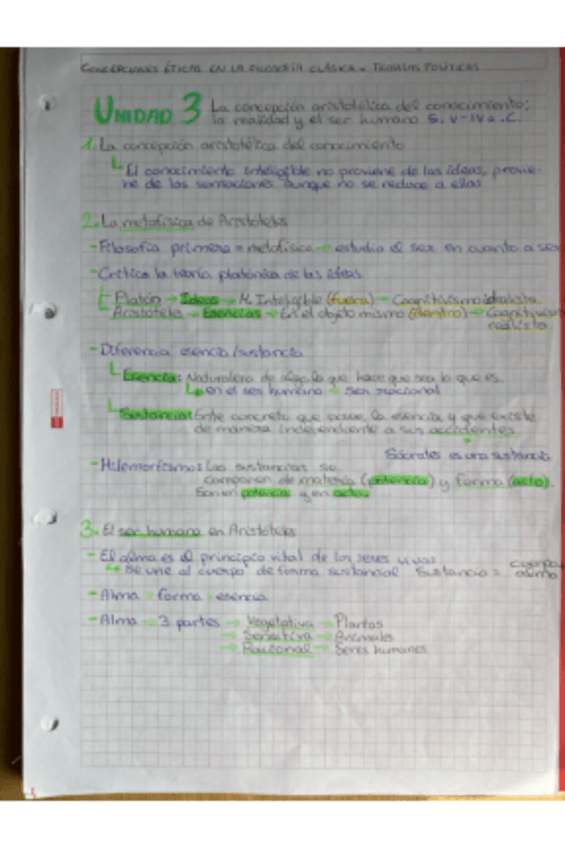 CONCEPCIONES ÉTICAS EN LA FILOSOFÍA CLÁSICA. TEORÍAS POLÍTICAS
UNIDAD 3 La concepción aristotélica del conocimiento;
la realidad y el ser humano S. V-IV a.C.
1. La concepción aristotélica del conocimiento
El conocimiento inteligible no proviene de las ideas, provie-
ne de las sensaciones aunque no se reduce a ellas
2. La metafísica de Aristóteles
- Filosofía primera = metafísica → estudia el ser en cuanto a ser
- Crítica la teoría platónica de las ideas
Platón → Ideas → M. Inteligible (fuera) → Cognitivismo idealista
Aristóteles → Esencias → En el objeto mismo (dentro) → Cognitivismo
realista
- Diferencia esencia/sustancia
Esencia: Naturaleza de algo, lo que hace que sea lo que es.
en el ser humano → ser racional
Sustancia: Ente concreto que posee la esencia y que existe
de manera independiente a sus accidentes.
Sócrates es una sustancia
- Hilemorfismo: Las sustancias se
componen de materia (potencia) y forma (acto).
Son en potencia y en acto.
3. El ser humano en Aristóteles
- El alma es el principio vital de los seres vivos
se une al cuerpo de forma sustancial Sustancia = cuerpo
alma
- Alma = forma = esencia
- Alma → 3 partes → Vegetativa → Plantas
→ Sensitiva → Animales
→ Racional → Seres humanos